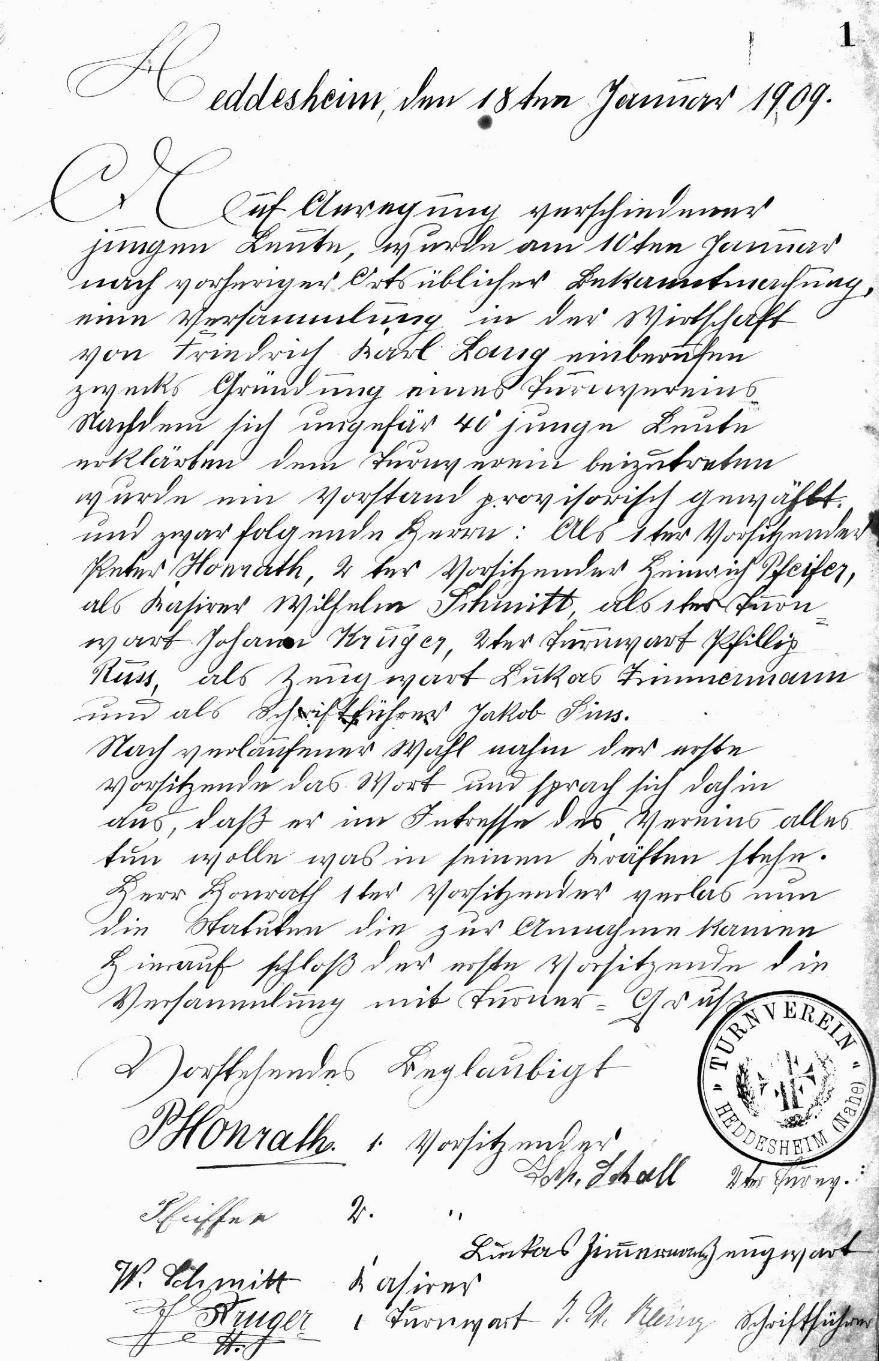 1
Heddesheim, den 18ten Januar 1909.
Auf Anregung verschiedener
jungen Leute, wurde am 10ten Januar
nach vorheriger Ortsüblicher Bekanntmachung,
eine Versammlung in der Wirtschaft
von Friedrich Karl Lang einberufen
zwecks Gründung eines Turnvereins
Nachdem sich ungefär 40 junge Leute
erklärten dem Turnverein beizutreten
wurde ein Vorstand provisorisch gewählt.
und zwar folgende Herrn: Als 1ter Vorsitzender
Peter Honrath, 2ter Vorsitzender Heinrich Pfeifer,
als Kasirer Wilhelm Schmitt, als 1ter Turn=
wart Johann Krüger, 2ter Turnwart Phillip
Russ, als Zeugwart Lukas Zimmermann
und als Schriftführer Jakob Sins.
Nach verlaufener Wahl nahm der erste
Vorsitzende das Wort und sprach sich dahin
aus, daß er im Intresse des Vereins alles
tun wolle was in seinen Kräften stehe.
Herr Honrath 1ter Vorsitzender verlas nun
die Statuten die zur Annahme kamen
Hierauf schloß der erste Vorsitzende die
Versammlung mit Turner=Gruß
Vorstehendes Beglaubigt
TURNVEREIN
HEDDESHEIM (Nahe)
PHonrath. 1. Vorsitzender
Schall 2ter Turnw.
Pfeiffer 2. "
Lukas Zimmermann Zeugwart
W. Schmitt Kasirer
J Krüger 1 Turnwart
Schriftführer